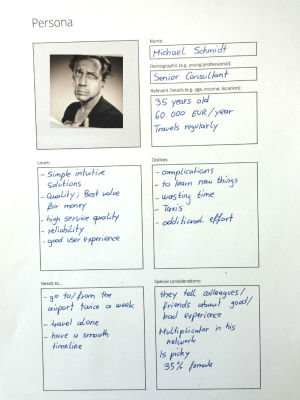 Persona
Name:
Michael Schmidt
Demographic (e.g. young professional):
Senior Consultant
Relevant Details (e.g. age, income, location):
35 years old
60.000 EUR/year
Travels regularly
Loves:
- Simple intutive
solutions
- Quality; Best value
for money
- high service quality
- reliability
- good user experience
Dislikes:
- complications
- to learn new things
- wasting time
- Taxis
- additional effort
Needs to...
- go to/from the
airport twice a week
- travel alone
- have a smooth
timeline
Special considerations:
they tell colleagues/
friends about good/
bad experience
Multiplicator in his
network
Is picky
35% female